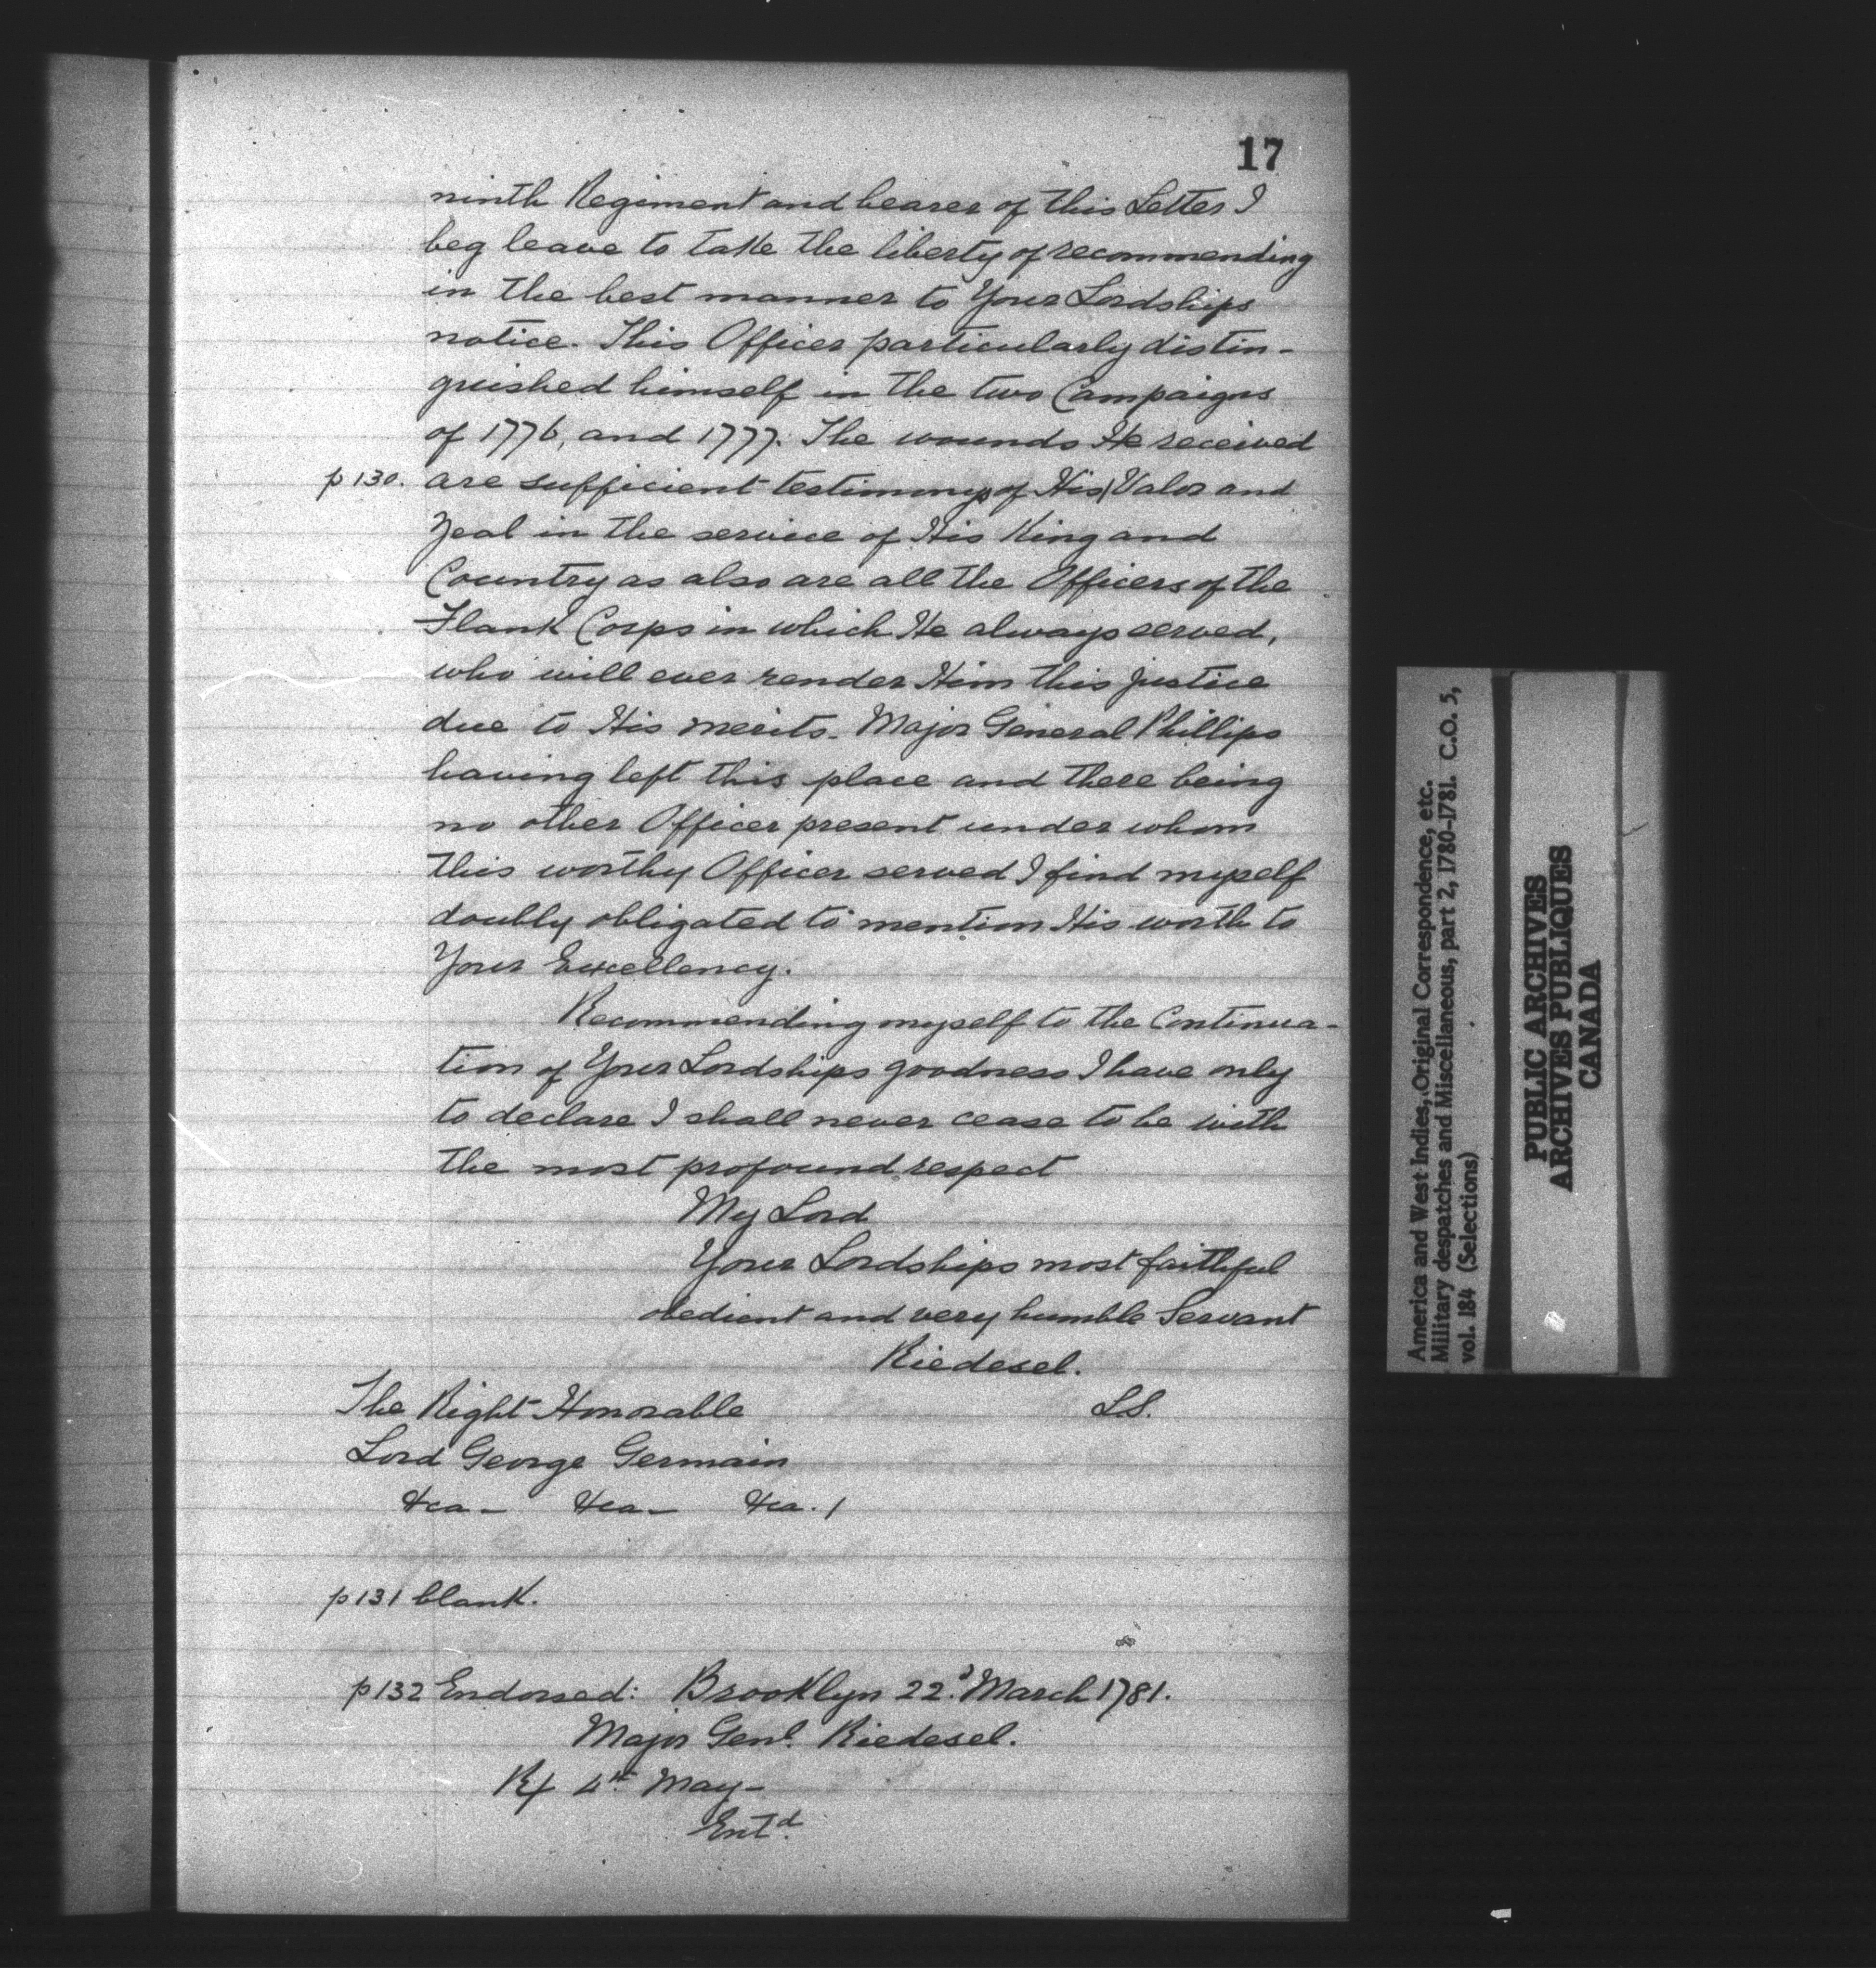 17
ninth Regiment and bearer of this Letter I
beg leave to take the liberty of recommending
in the best manner to Your Lordships
notice. This Officer particularly distin-
guished himself in the two Campaigns
of 1776, and 1777. The wounds He received
p 130. are sufficient testimony of His | Valor and
Zeal in the service of His King and
Country as also are all the Officers of the
Flank Corps in which He always served,
who will ever render Him this justice
due to His merits. Major General Phillips
having left this place and there being
no other Officer present under whom
this worthy Officer served I find myself
doubly obligated to mention His worth to
Your Excellency.
Recommending myself to the Continua-
tion of Your Lordships goodness I have only
to declare I shall never cease to be with
the most profound respect
My Lord
Your Lordships most faithful
obedient and very humble Servant
Riedesel.
The Right Honorable L.S.
Lord George Germain
&ca - &ca - &ca. /
p 131 blank.
p 132 Endorsed: Brooklyn 22.d March 1781.
Major Genl. Riedesel.
4th May -
Entd.
America and West Indies, Original Correspondence, etc.
Military despatches and Miscellaneous, part 2, 1780-1781. C.O. 5,
vol. 184 (Selections)
PUBLIC ARCHIVES
ARCHIVES PUBLIQUES
CANADA